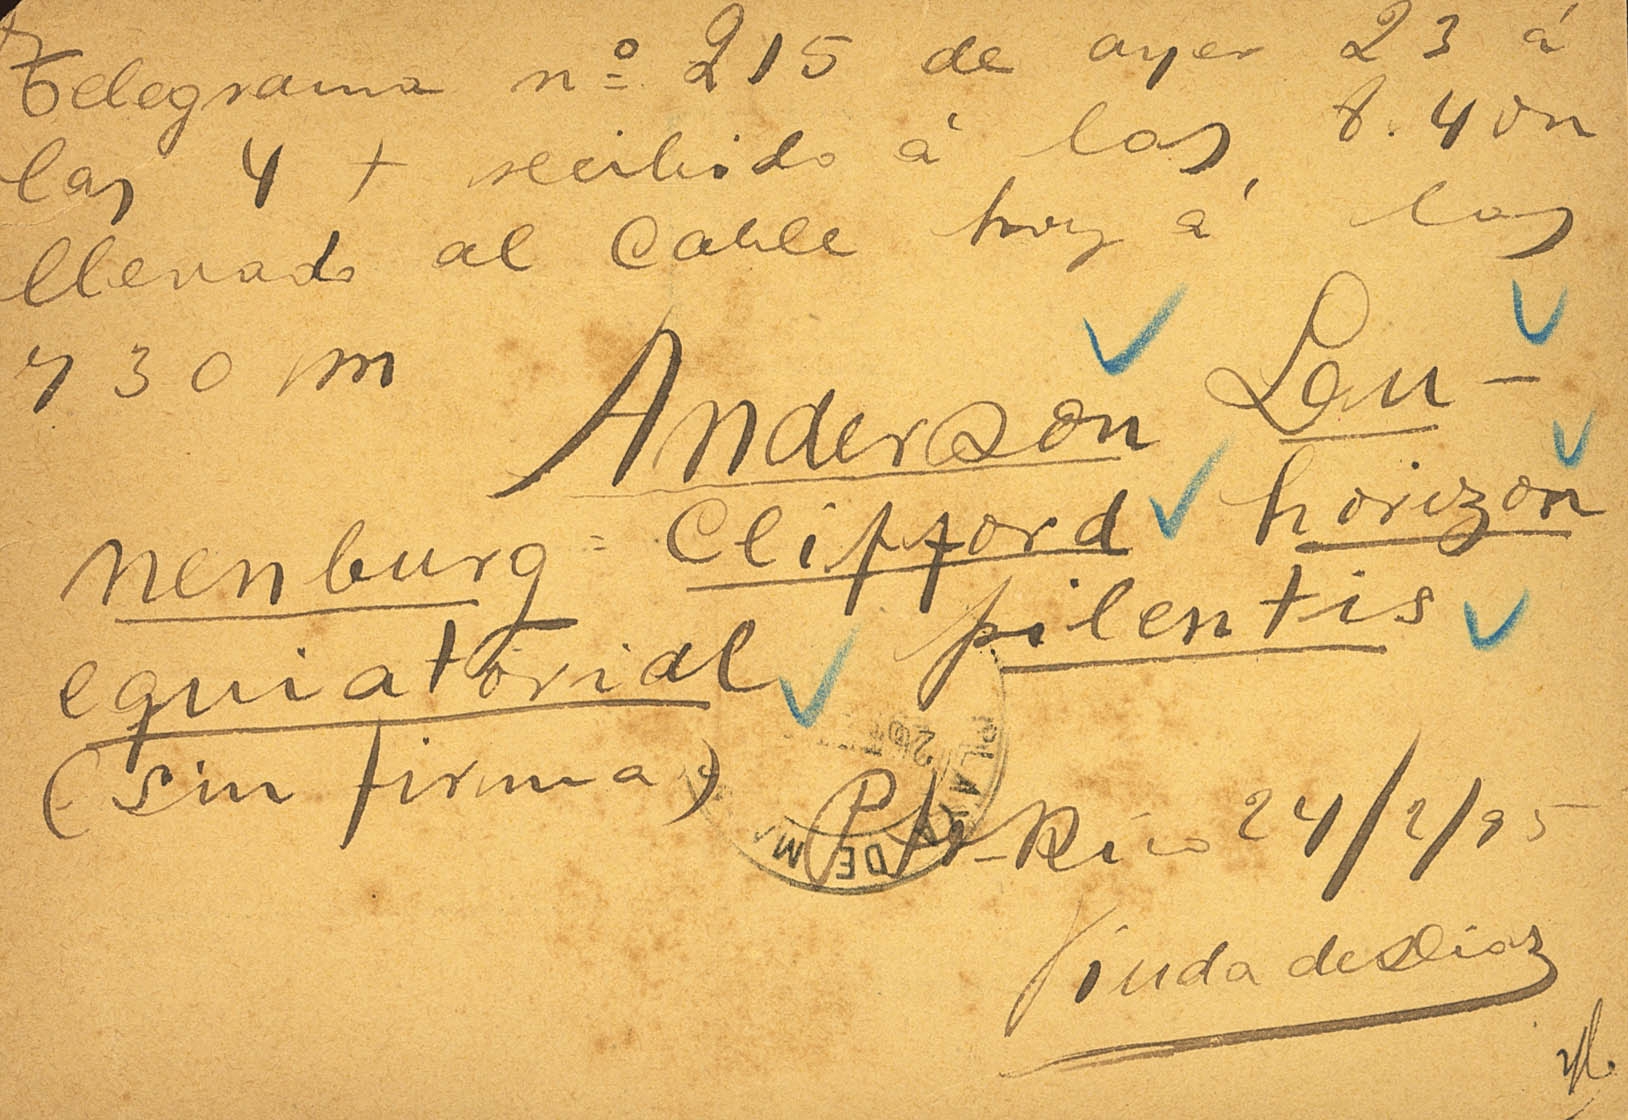 Telegrama nº 215 de ayer 23 á
las 4 t recibido á las 8.40n
llevado al Cable hoy á las
7 30 m
Anderson Lau-
nenburg = Clifford horizon
equiatorial pilentis
(sin firma)
Pto-Rico 24/2/95
Viuda de Diaz
PLAYA DE M